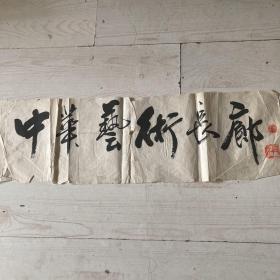 中華藝術長廊